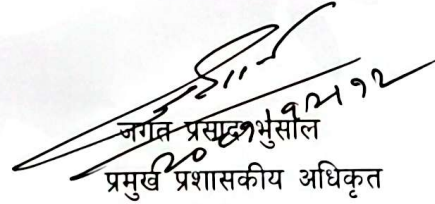 जगत प्रसाद भुसाल
प्रमुख प्रशासकीय अधिकृत